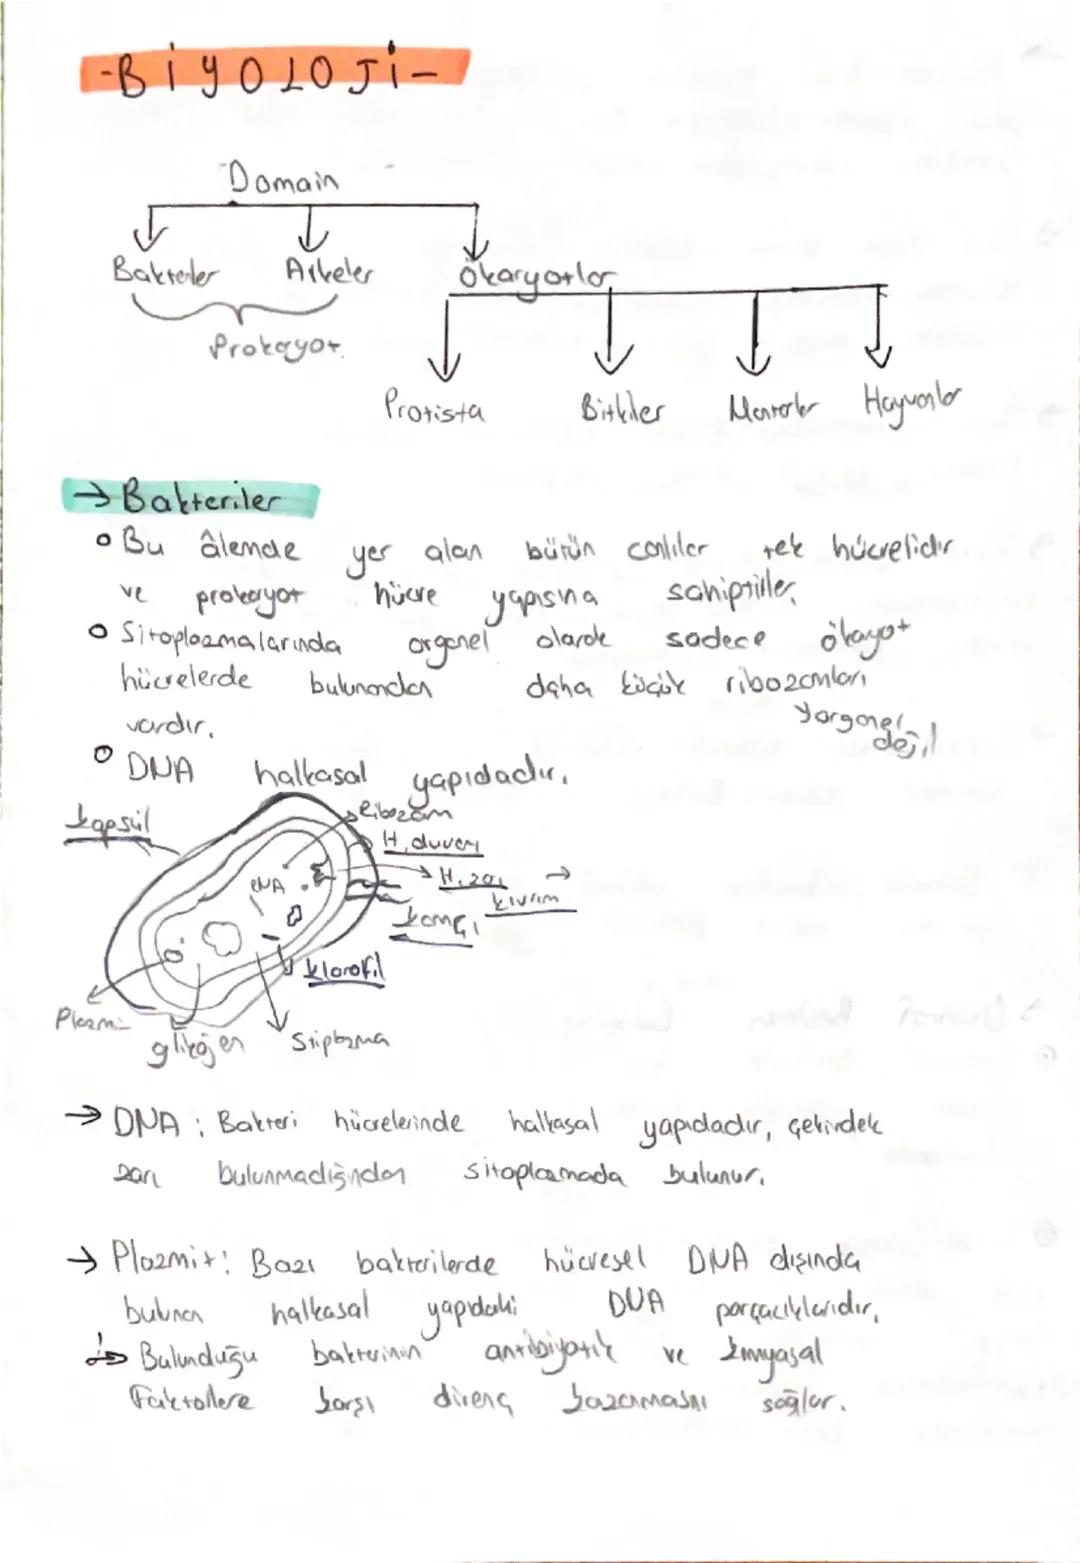 -BİYOLOJİ-
Domain
Bakteriler Arkeler Ökaryotlar
Prokayot.
Protista Bitkiler Mantarlar Hayvanlar
→ Bakteriler
Bu âlemde yer alan bütün canlılar tek hücrelidir
ve prokaryot hücre yapısına sahiptirler.
Sitoplazmalarında organel olarak sadece ökayot
hücrelerde bulunandan daha küçük ribozomları
vardır.
organel değil
DNA halkasal yapıdadır.
kapsül
Ribozom
H. duvarı
H. zarı
kıvrım
DNA
kamçı
klorofil
Plazmit
glikojen
Stiplazma
→ DNA: Bakteri hücrelerinde halkasal yapıdadır, çekirdek
zarı bulunmadığından sitoplazmada bulunur.
→ Plazmit: Bazı bakterilerde hücresel DNA dışında
bulunan halkasal yapıdaki DNA parçacıklarıdır.
Bulunduğu bakterinin antibiyotik ve kimyasal
Faktöllere karşı direnç kazanmasını sağlar.